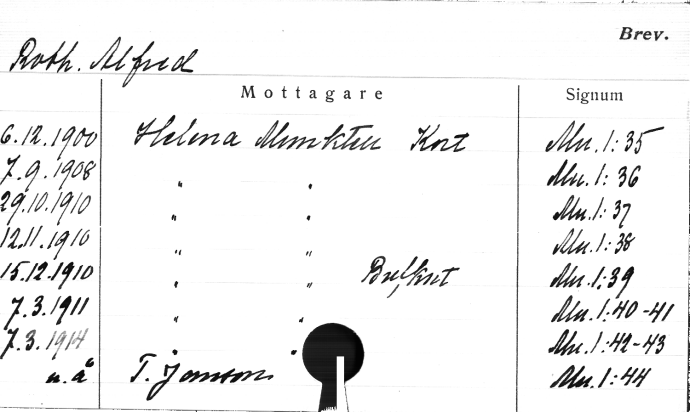 Brev.
Roth. Alfred
Mottagare Signum
6.12.1900 Helena Munktell Kort Mu.1:35
7.9.1908 " " Mu.1:36
29.10.1910 " " Mu.1:37
12.11.1910 " " Mu.1:38
15.12.1910 " " Mu.1:39
7.3.1911 " " Mu.1:40-41
7.3.1914 " " Mu.1:42-43
u.å T. Jansson Mu.1:44